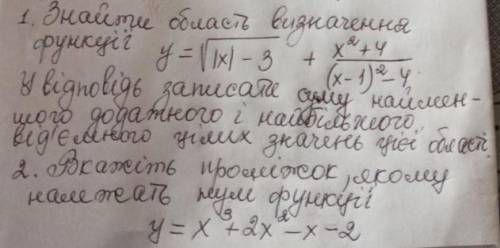 1. Знайти область визначення
функції y = √|x| - 3 + x² + 4 / (x - 1)² - 4
У відповідь записати суму наймен-
шого додатного і найбільшого
від'ємного цілих значень цієї області.
2. Вкажіть проміжок, якому
належать нулі функції
y = x³ + 2x² - x - 2